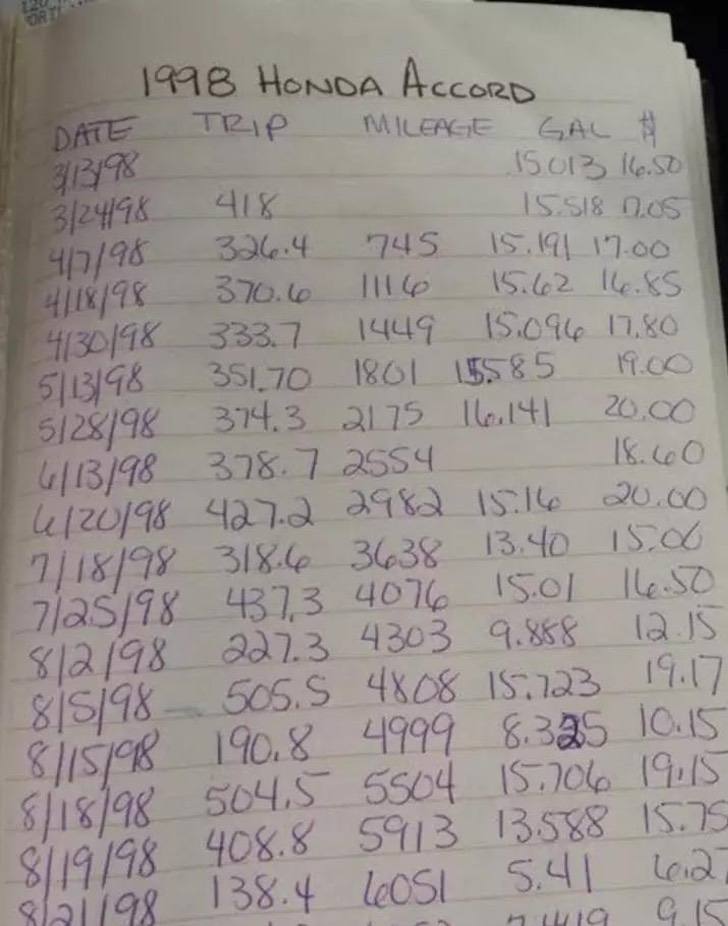 1998 HONDA ACCORD
DATE TRIP MILEAGE GAL $
3/13/98 15.013 16.50
3/24/98 418 15.518 17.05
4/7/98 326.4 745 15.191 17.00
4/18/98 370.6 1116 15.62 16.85
4/30/98 333.7 1449 15.096 17.80
5/13/98 351.70 1801 15.585 19.00
5/28/98 374.3 2175 16.141 20.00
6/13/98 378.7 2554 18.60
6/20/98 427.2 2982 15.16 20.00
7/18/98 318.6 3638 13.40 15.00
7/25/98 437.3 4076 15.01 16.50
8/2/98 227.3 4303 9.888 12.15
8/5/98 505.5 4808 15.723 19.17
8/15/98 190.8 4999 8.325 10.15
8/18/98 504.5 5504 15.706 19.15
8/19/98 408.8 5913 13.588 15.75
8/21/98 138.4 6051 5.41 6.27
9.15